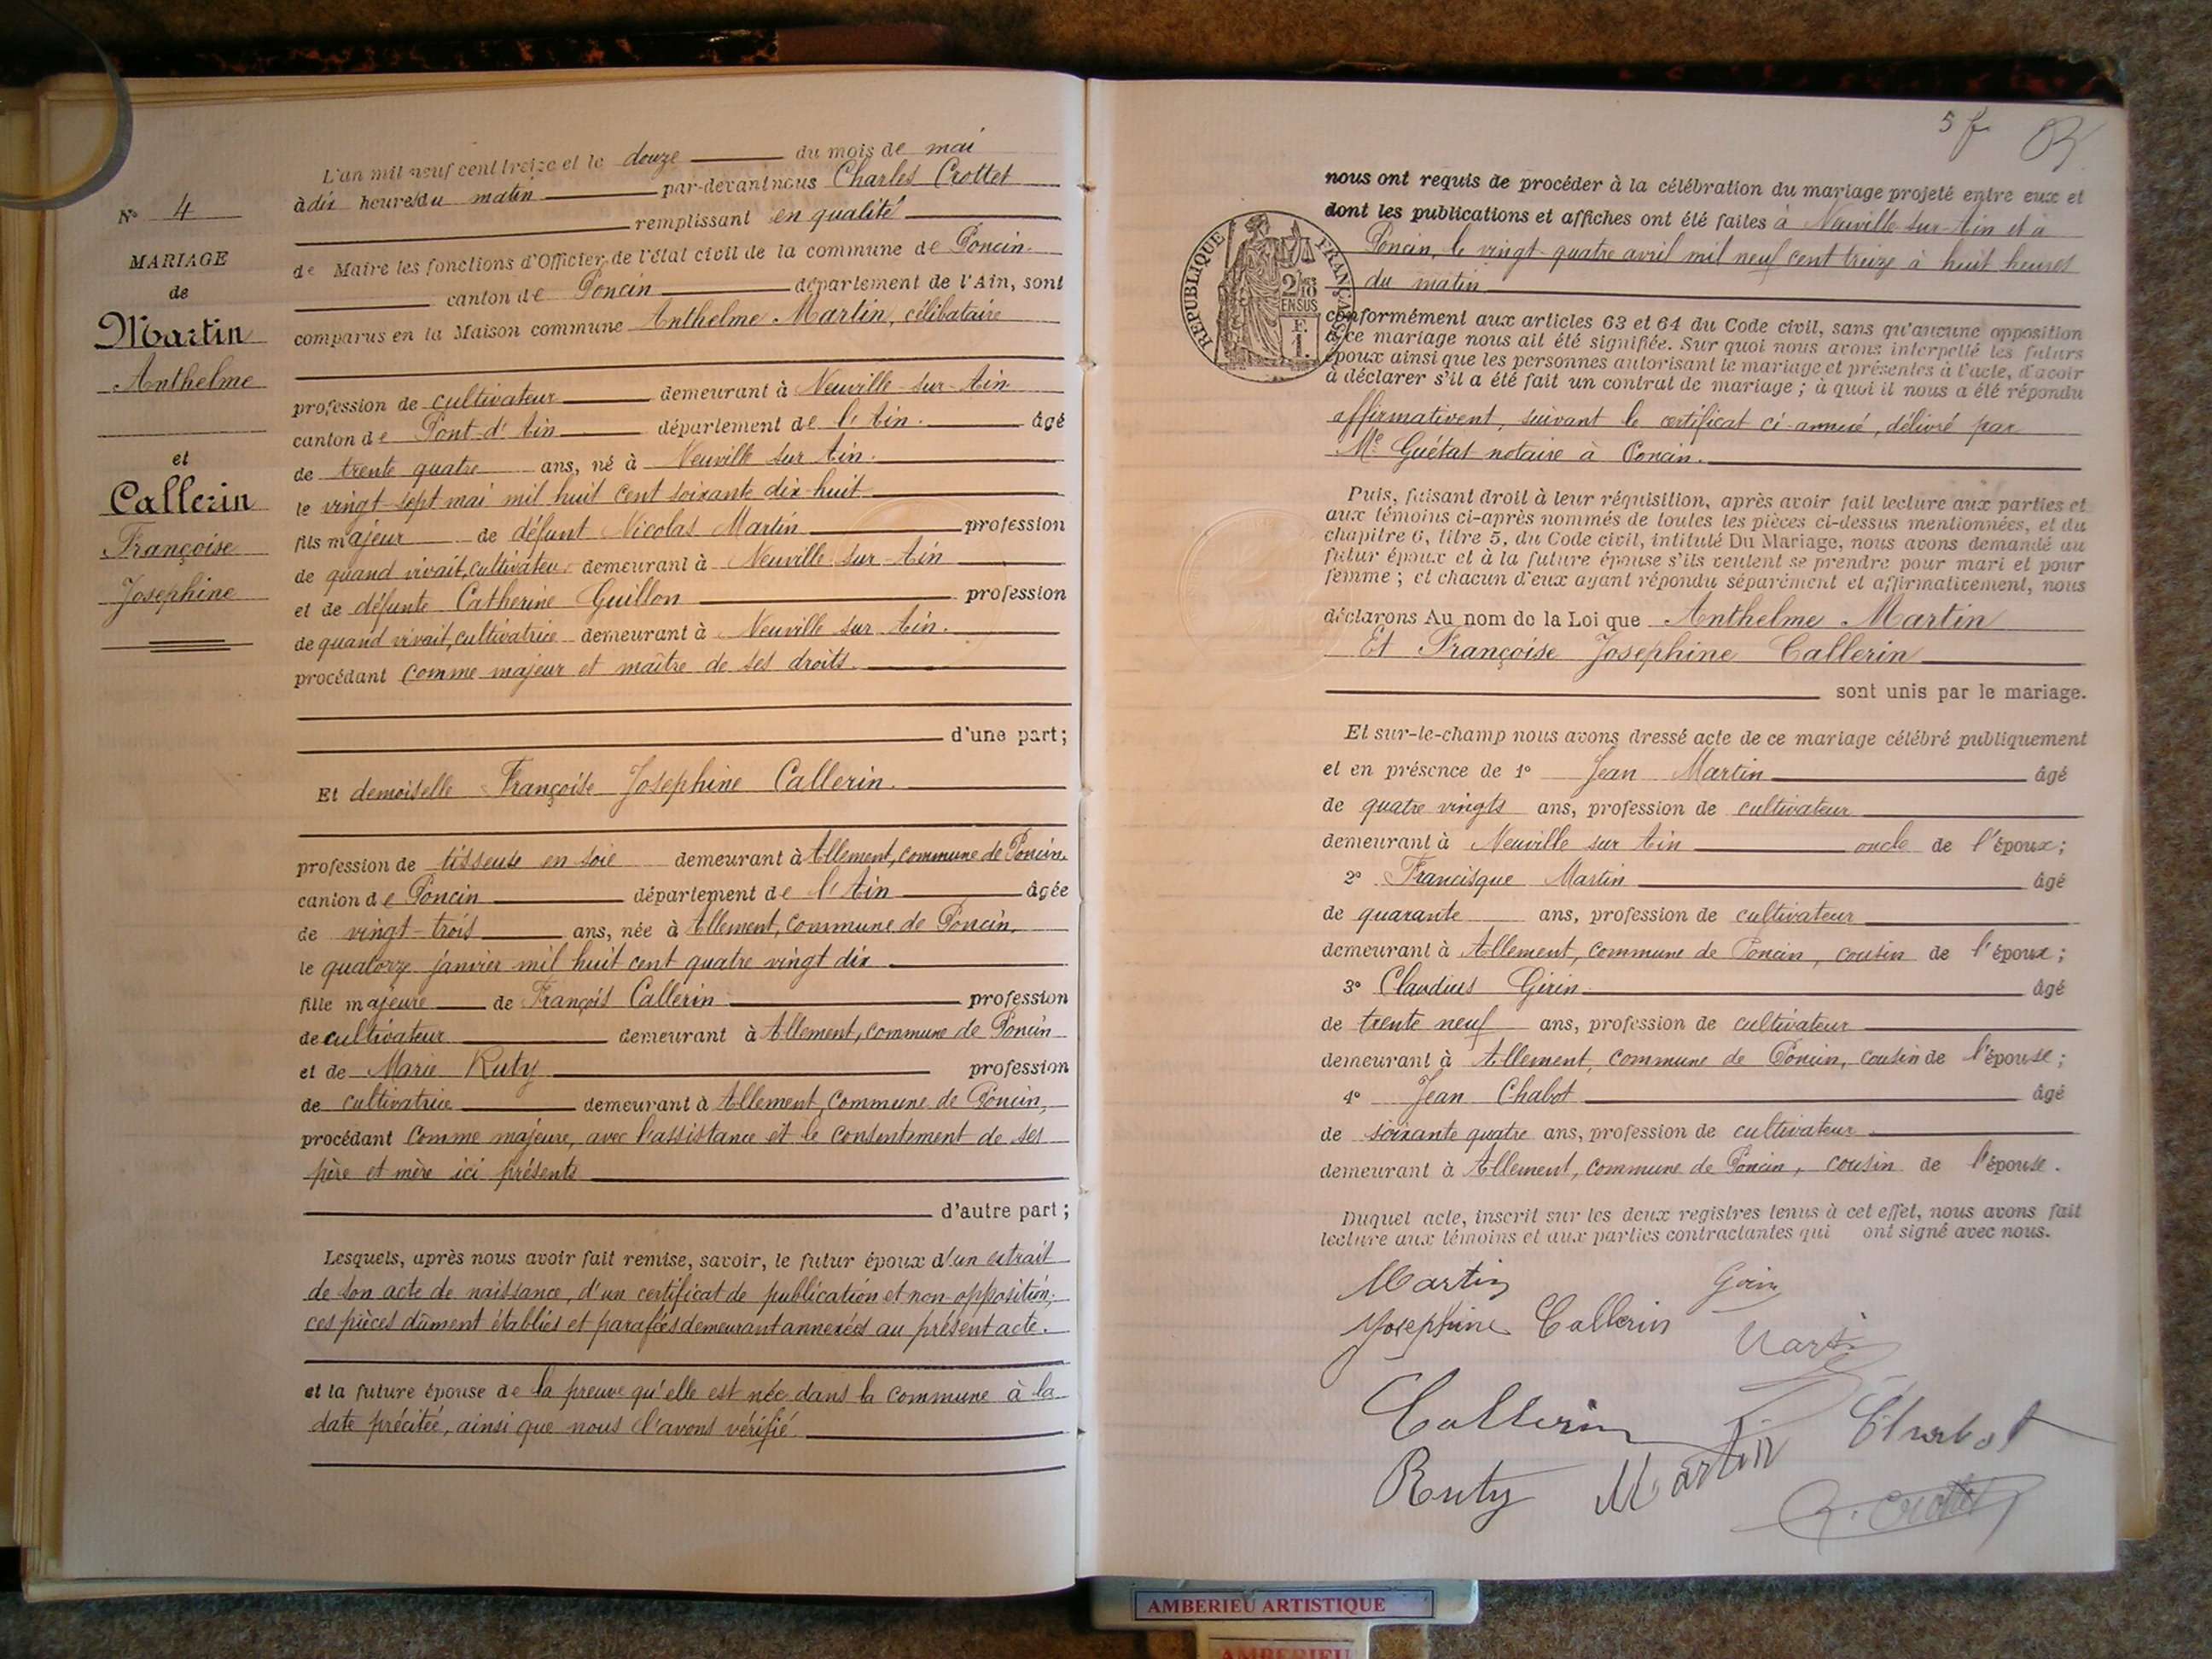 N° 4
MARIAGE
de
Martin
Anthelme
et
Callerin
Françoise
Josephine
L'an mil neuf cent treize et le douze du mois de mai
à dix heures du matin par-devant nous Charles Crottet
remplissant en qualité
de Maire les fonctions d'Officier de l'état civil de la commune de Poncin
canton de Poncin département de l'Ain, sont
comparus en la Maison commune Anthelme Martin, célibataire
profession de cultivateur demeurant à Neuville-sur-Ain
canton de Pont-d'Ain département de l'Ain. âgé
de trente quatre ans, né à Neuville sur Ain.
le vingt-sept mai mil huit cent soixante dix-huit
fils majeur de défunt Nicolas Martin profession
de quand vivait, cultivateur demeurant à Neuville-sur-Ain
et de défunte Catherine Guillon profession
de quand vivait, cultivatrice demeurant à Neuville sur Ain.
procédant comme majeur et maître de ses droits.
d'une part;
Et demoiselle Françoise Josephine Callerin.
profession de tisseuse en soie demeurant à Allement, commune de Poncin
canton de Poncin département de l'Ain âgée
de vingt-trois ans, née à Allement, commune de Poncin,
le quatorze janvier mil huit cent quatre vingt dix
fille majeure de François Callerin profession
de cultivateur demeurant à Allement, commune de Poncin
et de Marie Ruty profession
de cultivatrice demeurant à Allement, commune de Poncin,
procédant comme majeure, avec l'assistance et le consentement de ses
père et mère ici présents
d'autre part;
Lesquels, après nous avoir fait remise, savoir, le futur époux d'un extrait
de son acte de naissance, d'un certificat de publication et non-opposition;
ces pièces dûment établies et parafées demeurant annexées au présent acte.
et la future épouse de la preuve qu'elle est née dans la commune à la
date précitée, ainsi que nous l'avons vérifié.
5 f
nous ont requis de procéder à la célébration du mariage projeté entre eux et
dont les publications et affiches ont été faites à Neuville-sur-Ain et à
Poncin, le vingt-quatre avril mil neuf cent treize à huit heures
du matin
REPUBLIQUE FRANÇAISE
2/10
EN SUS
F.
1.
conformément aux articles 63 et 64 du Code civil, sans qu'aucune opposition
à ce mariage nous ait été signifiée. Sur quoi nous avons interpellé les futurs
époux ainsi que les personnes autorisant le mariage et présentes à l'acte, d'avoir
à déclarer s'il a été fait un contrat de mariage; à quoi il nous a été répondu
affirmativent, suivant le certificat ci-annexé, délivré par
Me Guétat notaire à Poncin.
Puis, faisant droit à leur réquisition, après avoir fait lecture aux parties et
aux témoins ci-après nommés de toutes les pièces ci-dessus mentionnées, et du
chapitre 6, titre 5, du Code civil, intitulé Du Mariage, nous avons demandé au
futur époux et à la future épouse s'ils veulent se prendre pour mari et pour
femme; et chacun d'eux ayant répondu séparément et affirmativement, nous
déclarons Au nom de la Loi que Anthelme Martin
Et Françoise Josephine Callerin
sont unis par le mariage.
Et sur-le-champ nous avons dressé acte de ce mariage célébré publiquement
et en présence de 1° Jean Martin âgé
de quatre vingts ans, profession de cultivateur
demeurant à Neuville sur Ain oncle de l'époux;
2° Francisque Martin âgé
de quarante ans, profession de cultivateur
demeurant à Allement, commune de Poncin, cousin de l'époux;
3° Claudius Girin âgé
de trente neuf ans, profession de cultivateur
demeurant à Allement, commune de Poncin, cousin de l'épouse;
4° Jean Chabot âgé
de soixante quatre ans, profession de cultivateur
demeurant à Allement, commune de Poncin, cousin de l'épouse.
Duquel acte, inscrit sur les deux registres tenus à cet effet, nous avons fait
lecture aux témoins et aux parties contractantes qui ont signé avec nous.
Martin Girin
Josephine Callerin Martin
Callerin Chabot
Ruty Martin
C. Crottet
AMBERIEU ARTISTIQUE
AMBERIEU